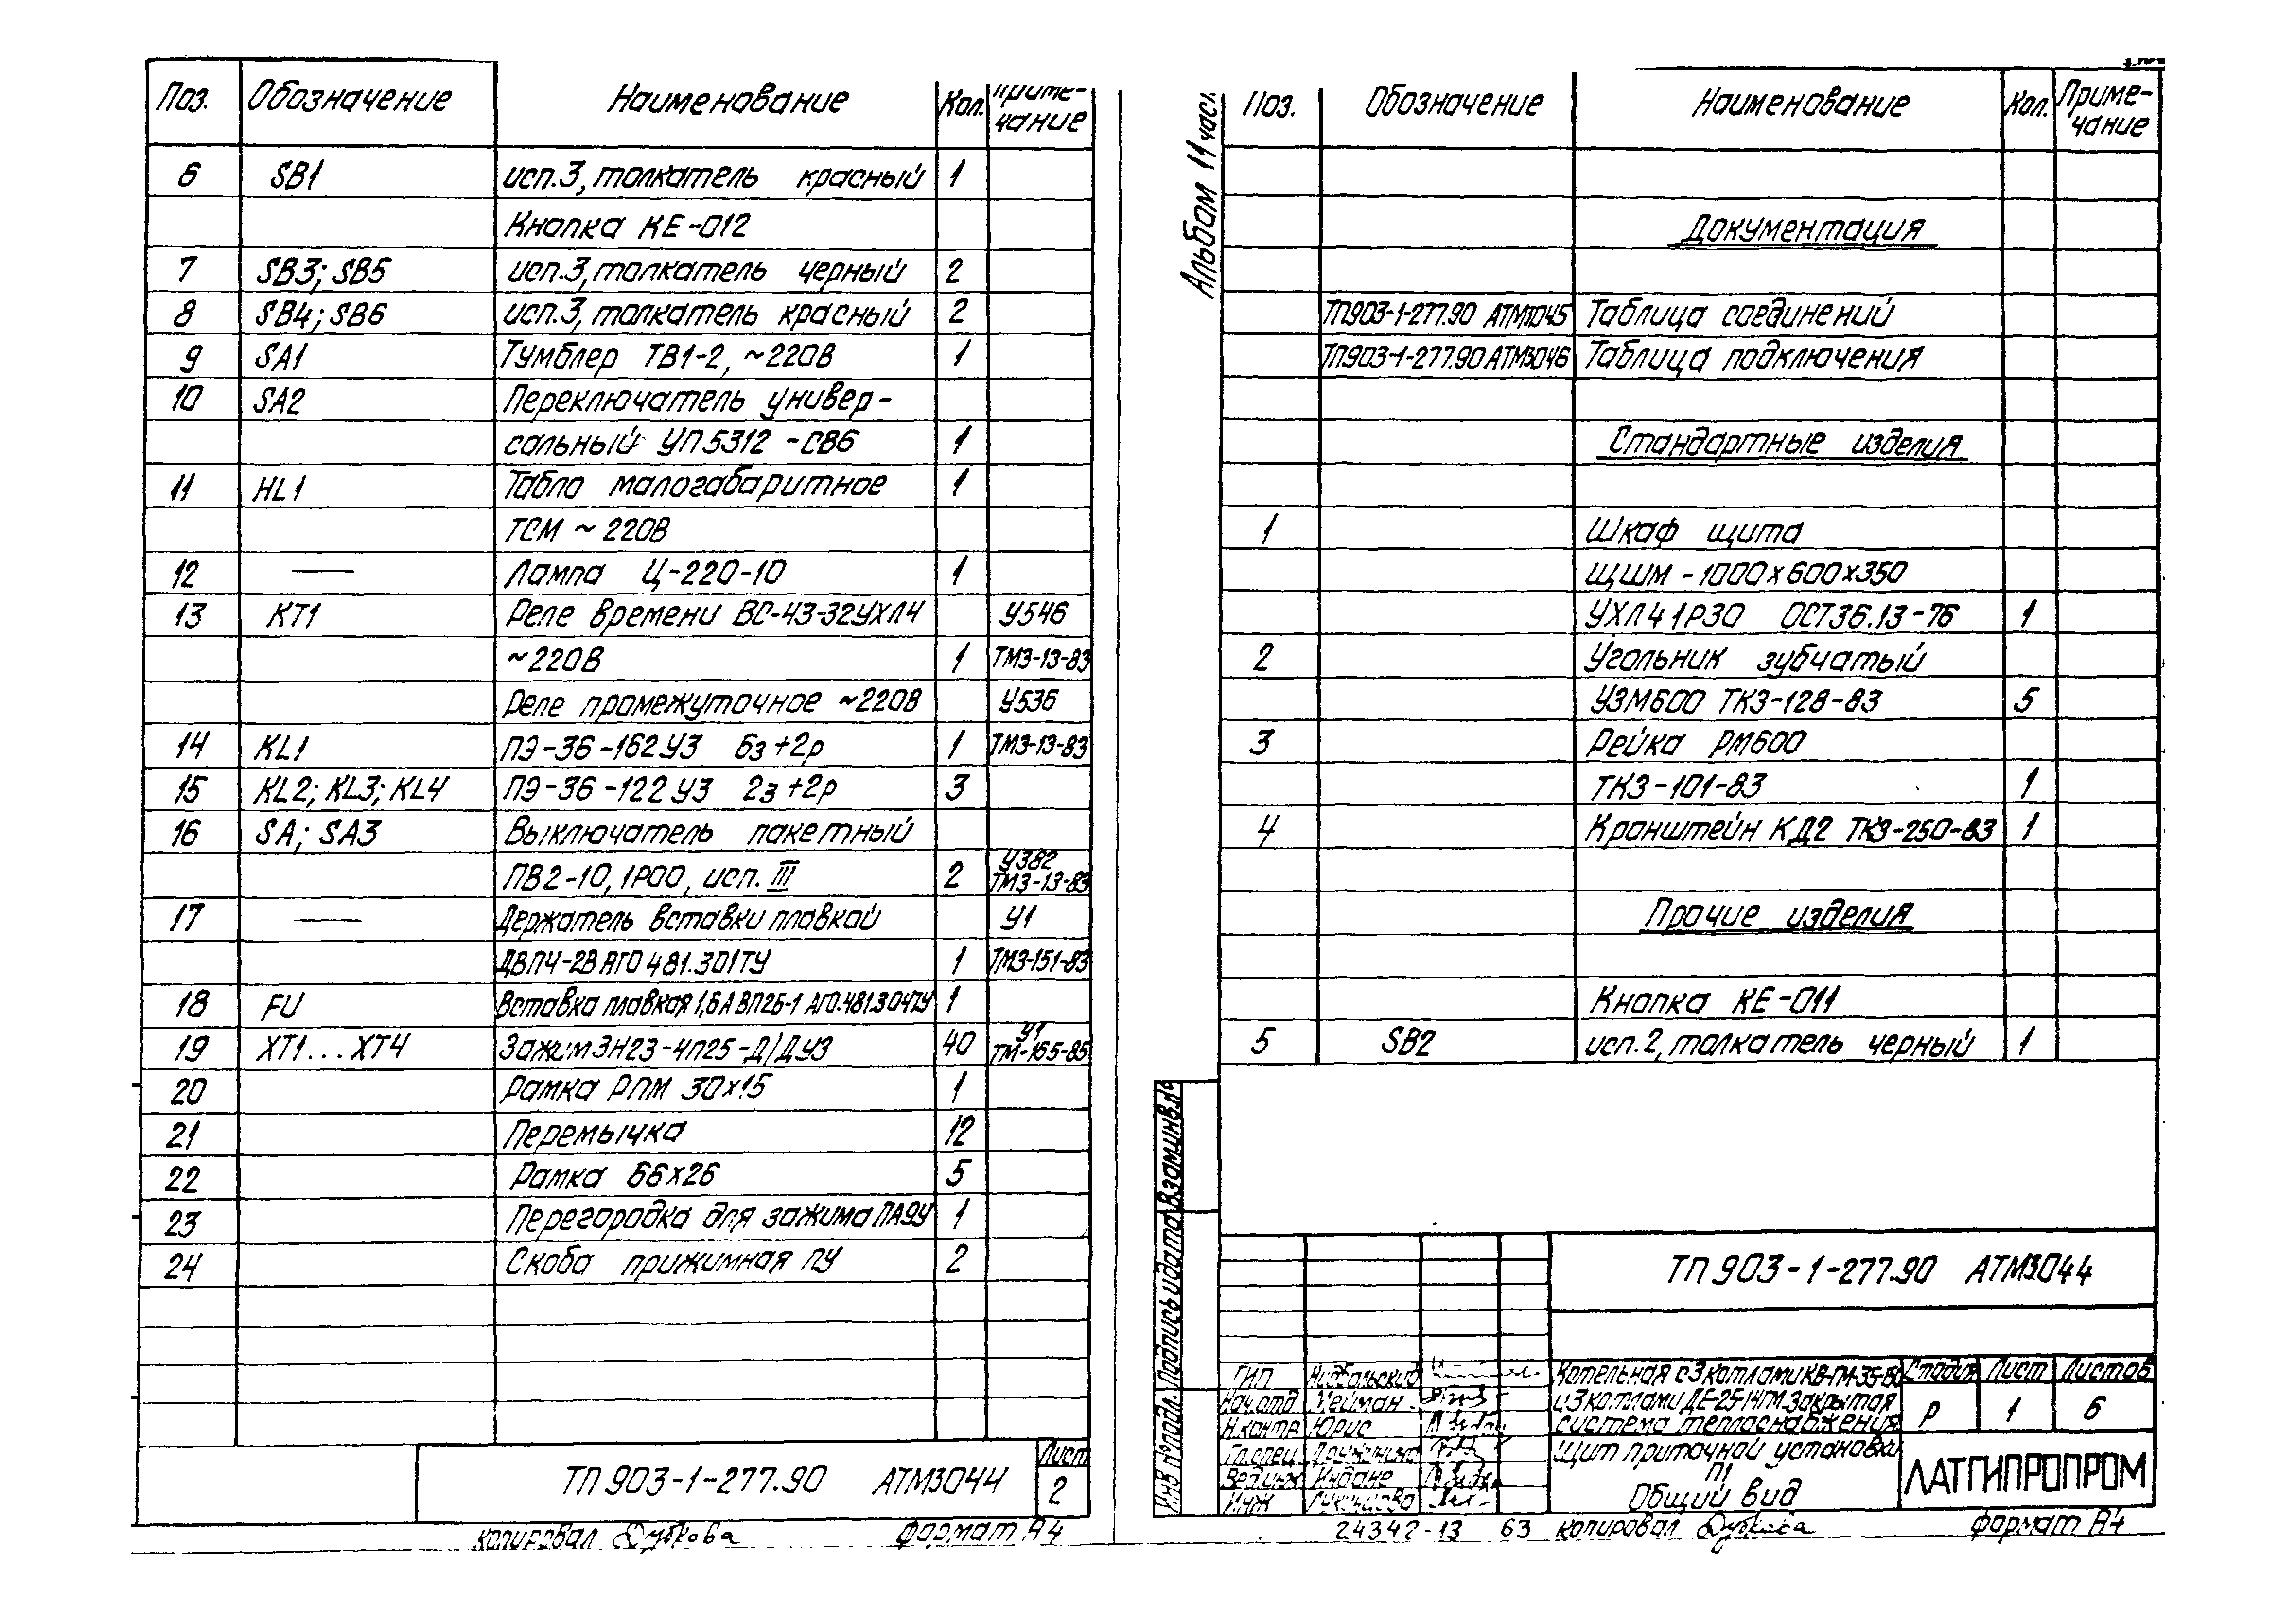 Поз. Обозначение Наименование Кол. Приме-
чание
6 SB1 исп.3, толкатель красный 1
Кнопка КЕ-012
7 SB3; SB5 исп.3, толкатель черный 2
8 SB4; SB6 исп.3, толкатель красный 2
9 SA1 Тумблер ТВ1-2, ~220В 1
10 SA2 Переключатель универ-
сальный УП5312-С86 1
11 HL1 Табло малогабаритное 1
ТСМ ~ 220В
12 — Лампа Ц-220-10 1
13 KT1 Реле времени ВС-43-32УХЛ4 У546
~220В 1 ТМ3-13-83
Реле промежуточное ~220В У536
14 KL1 ПЭ-36-162У3 6з+2р 1 ТМ3-13-83
15 KL2; KL3; KL4 ПЭ-36-122У3 2з+2р 3
16 SA; SA3 Выключатель пакетный
ПВ2-10, 1Р00, исп. III 2 У382 ТМ3-13-83
17 — Держатель вставки плавкой У1
ДВП4-2В АГО 481.301ТУ 1 ТМ3-151-83
18 FU Вставка плавкая 1,6А ВП2Б-1 АГО.481.304ТУ 1
19 XT1...XT4 Зажим ЗН23-4П25-Д/ДУ3 40 У1 ТМ-165-85
20 Рамка РПМ 30х15 1
21 Перемычка 12
22 Рамка 66х26 5
23 Перегородка для зажима ПА9У 1
24 Скоба прижимная ПУ 2
ТП 903-1-277.90 АТМ3044
Лист
2
копировал Дубкова формат А4
Альбом 11 част
Поз. Обозначение Наименование Кол. Приме-
чание
Документация
ТП903-1-277.90 АТМ3045 Таблица соединений
ТП903-1-277.90 АТМ3046 Таблица подключения
Стандартные изделия
1 Шкаф щита
ЩШМ-1000х600х350
УХЛ4 1Р30 ОСТ36.13-76 1
2 Угольник зубчатый
УЗМ600 ТК3-128-83 5
3 Рейка РМ600
ТК3-101-83 1
4 Кронштейн КД2 ТК3-250-83 1
Прочие изделия
Кнопка КЕ-011
5 SB2 исп.2, толкатель черный 1
Взам.инв.№
Подпись и дата
Инв № подл.
ТП 903-1-277.90 АТМ3044
ГИП
Нач.отд Мейман
Н.контр Юрис
Гл.спец
Вед.инж Индане
Инж
Котельная с 3 котлами КВ-ГМ-35-150
и 3 котлами ДЕ-25-14ГМ. Закрытая
система теплоснабжения
Стадия Лист Листов
Р 1 6
Щит приточной установки
П1
Общий вид
ЛАТГИПРОПРОМ
24342-13 63 копировал Дубкова формат А4